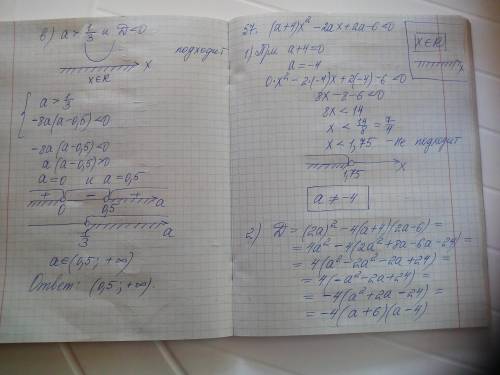 в) a > 1/3 и D < 0
подходит
x
x∈R
a > 1/3
-8a(a-0,5) < 0
-8a(a-0,5) < 0
a(a-0,5) > 0
a=0 и a=0,5
+ - +
0 0,5 a
1/3 a
a∈(0,5; +∞)
Ответ: (0,5; +∞).
57. (a+4)x² - 2ax + 2a - 6 < 0
x∈R
x
1) При a+4=0
a=-4
0·x² - 2·(-4)x + 2(-4) - 6 < 0
8x - 8 - 6 < 0
8x < 14
x < 14/8 = 7/4
x < 1,75 - не подходит
1,75 x
a ≠ -4
2) D = (2a)² - 4(a+4)(2a-6) =
= 4a² - 4(2a² + 8a - 6a - 24) =
= 4(a² - 2a² - 2a + 24) =
= 4(-a² - 2a + 24) =
= -4(a² + 2a - 24) =
= -4(a+6)(a-4)